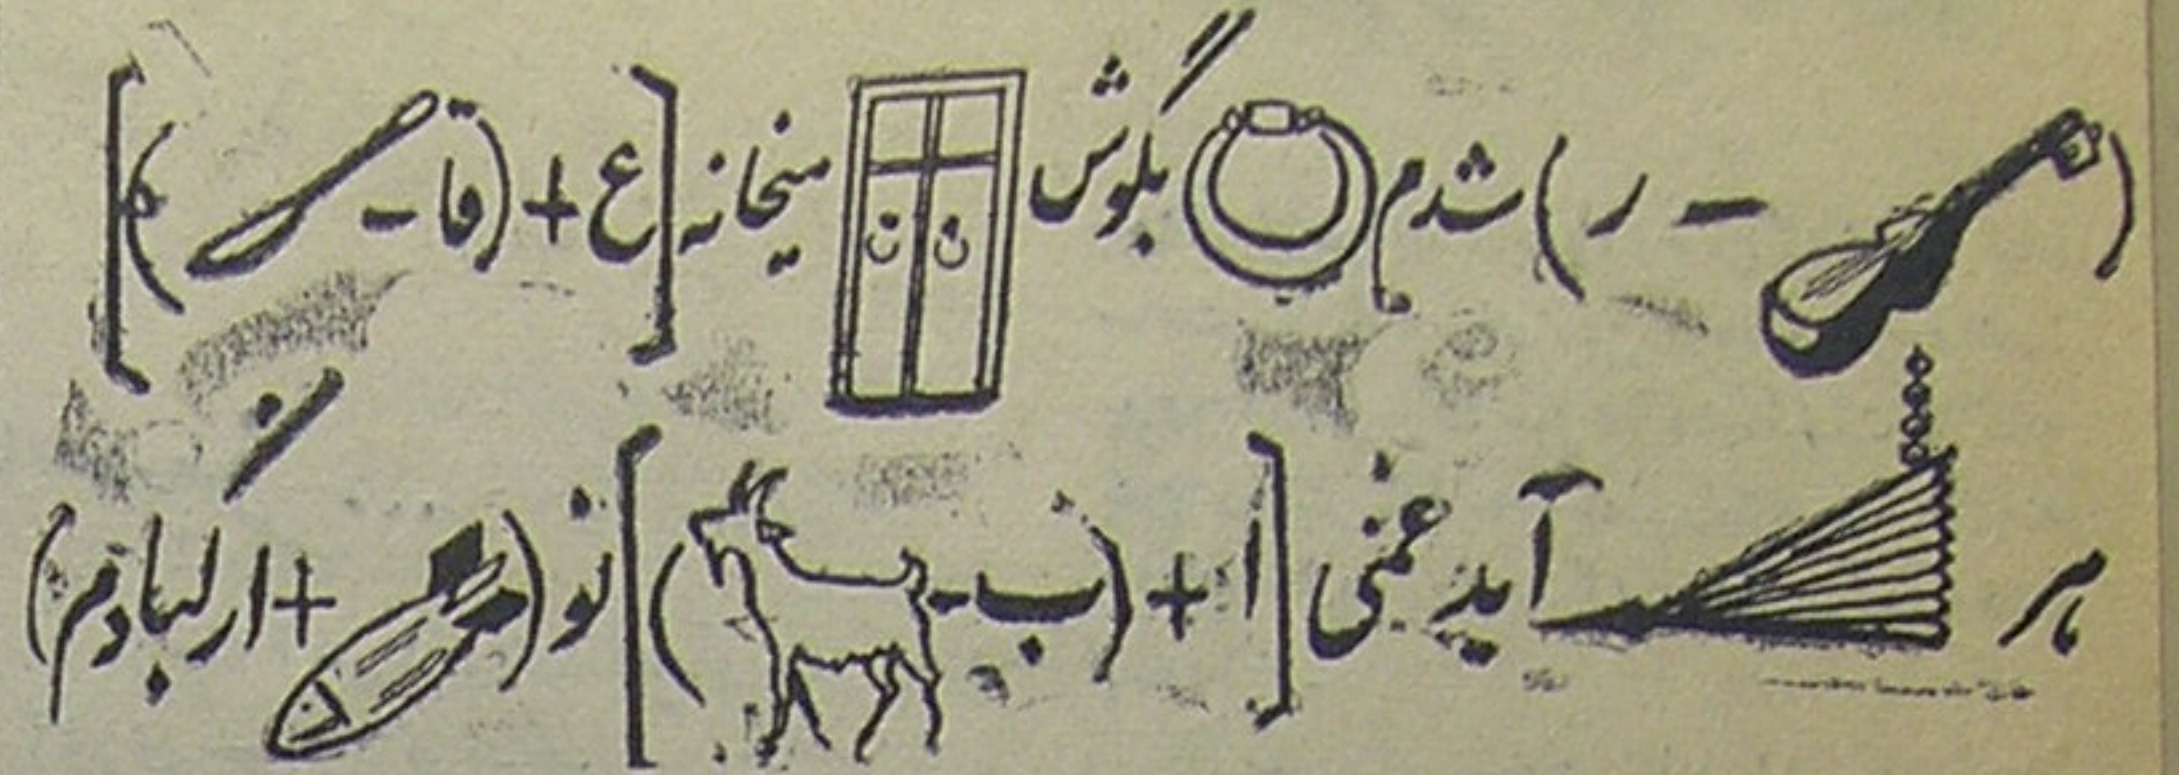 ( - ر ) شدم بگوش میخانه [ ع + ( قا - ) ]
هر آید غمی [ ا + ( ب - ) ] نو ( + ارکبادم )